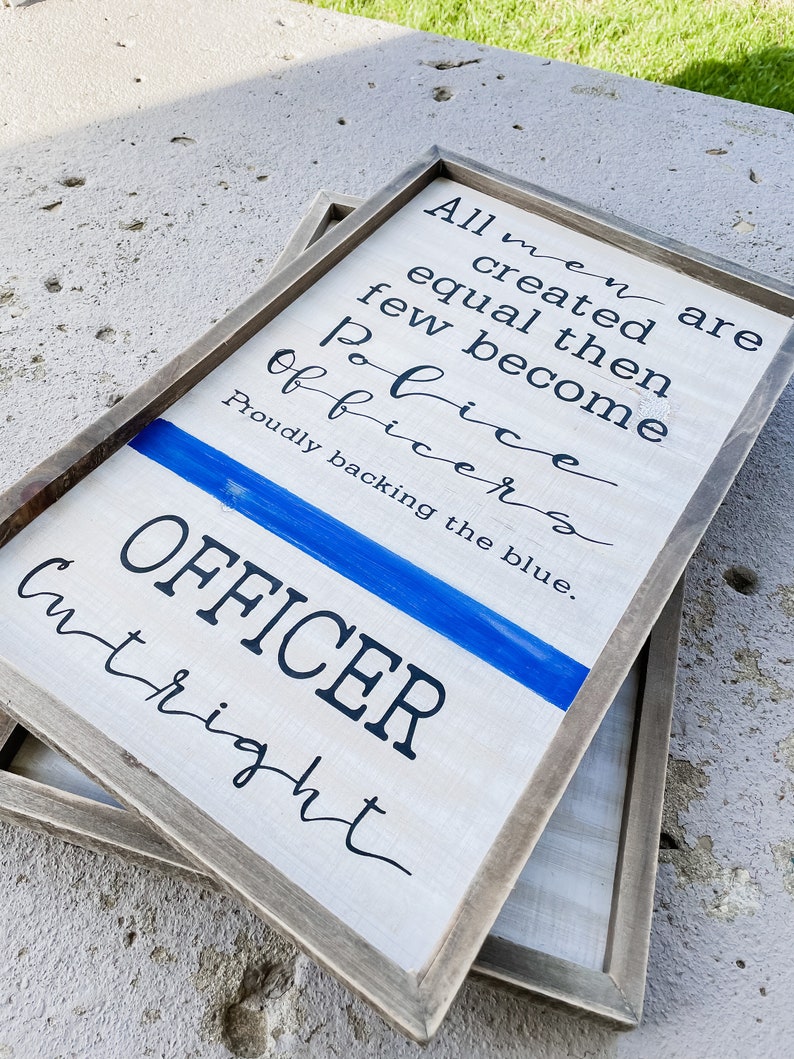 All men are
created
equal then
few become
Police
Officers
Proudly backing the blue.
OFFICER
Cutright